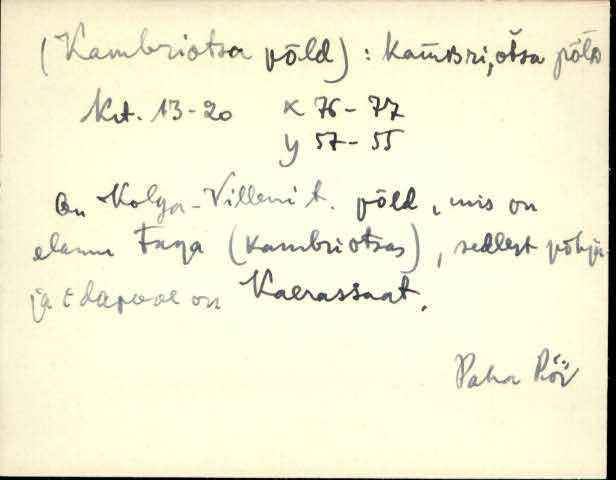 (Kambriotsa põld) : kamʙri,otsa põlᴅ
Krt. 13-20 x 76-77
y 57-55
On Kolga-Villemi t. põld, mis on
elamu taga (Kambriotsas), sellest põhja
ja ida pool on Kaerassaat.